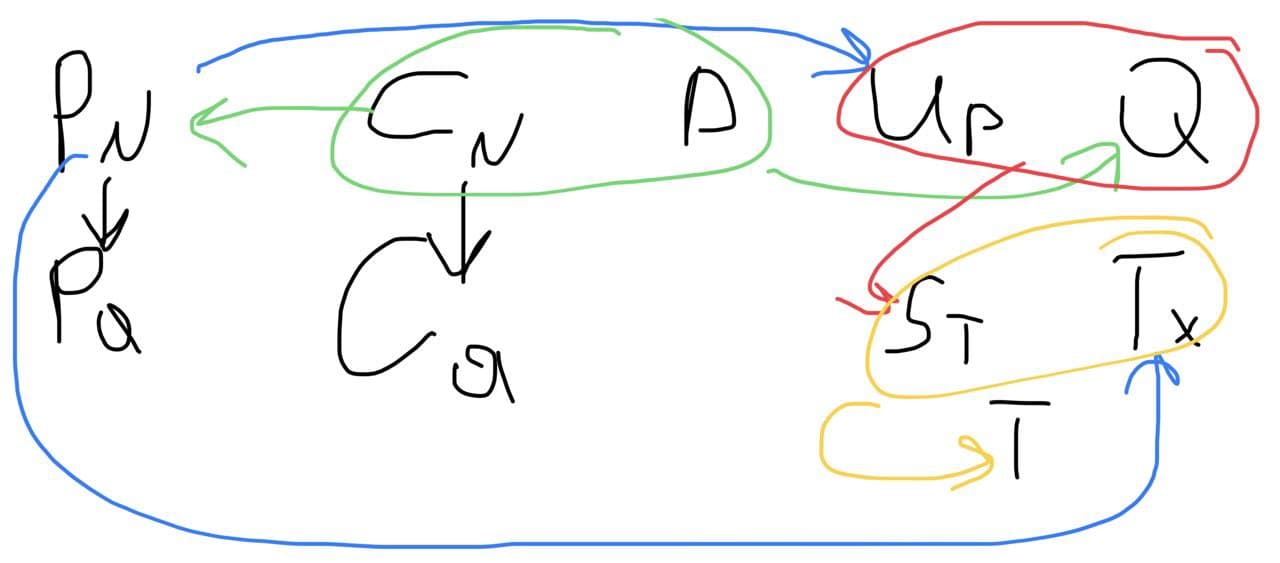 PN CN D UP Q
Pa Ca ST Tx
T